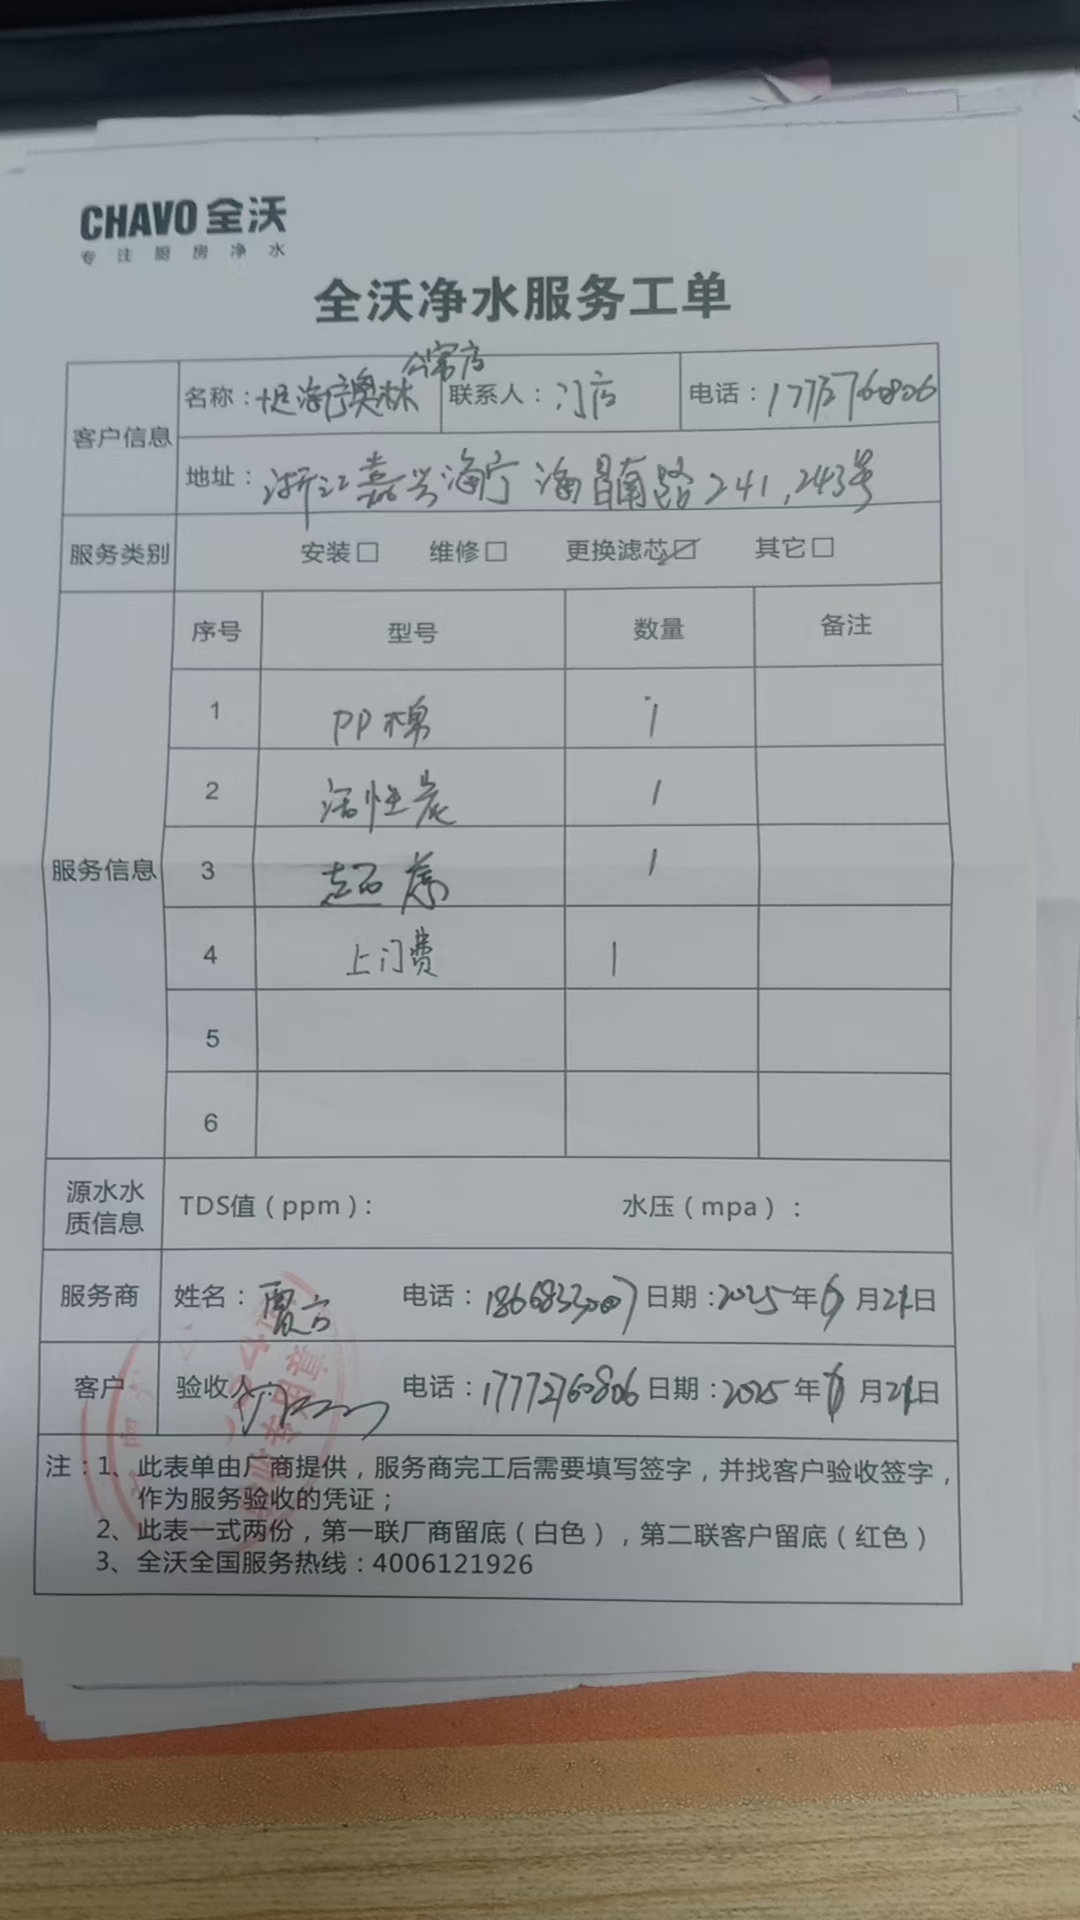 CHAVO 全沃
专注厨房净水
全沃净水服务工单
客户信息
名称：海宁奥林公寓店 联系人：门店 电话：17727760806
地址：浙江嘉兴海宁海昌南路241,243号
服务类别 安装□ 维修□ 更换滤芯☑ 其它□
服务信息
序号 型号 数量 备注
1 PP棉 1
2 活性炭 1
3 超滤 1
4 上门费 1
5
6
源水水质信息 TDS值（ppm）： 水压（mpa）：
服务商 姓名：贾方 电话：18668333007 日期：2025年6月21日
客户 验收人： 电话：17772760806 日期：2025年6月21日
注：1、此表单由厂商提供，服务商完工后需要填写签字，并找客户验收签字，
作为服务验收的凭证；
2、此表一式两份，第一联厂商留底（白色），第二联客户留底（红色）
3、全沃全国服务热线：4006121926